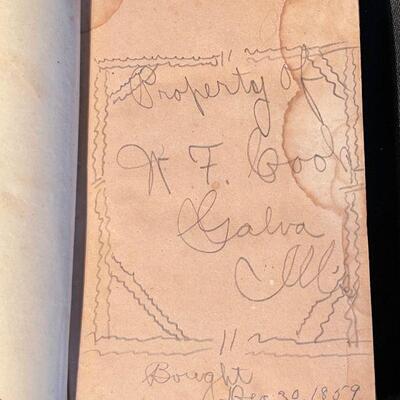 Property of
W. F. Cook
Galva
Ill.
Bought
Dec 30, 1859